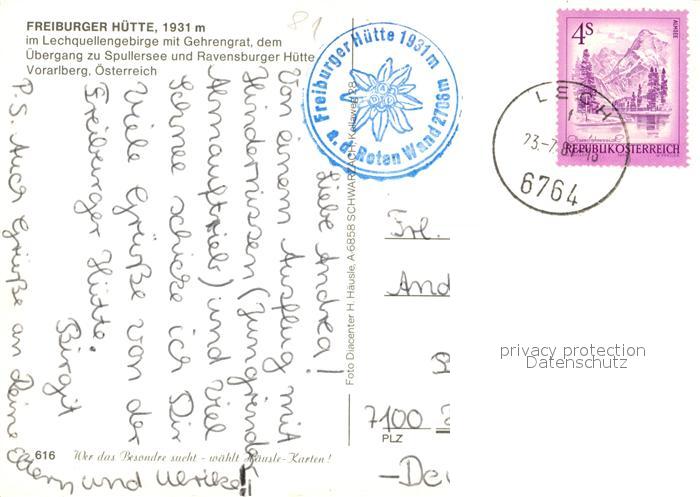 FREIBURGER HÜTTE, 1931 m
im Lechquellengebirge mit Gehrengrat, dem
Übergang zu Spullersee und Ravensburger Hütte
Vorarlberg, Österreich
81
Freiburger Hütte 1931m
a. d. Roten Wand 2706m
4S
ALMSEE
REPUBLIK ÖSTERREICH
LECH
23.-7.81-18
6764
Liebe Andrea!
Von einem Ausflug mit
Hindernissen (Jungrinder
Almauftrieb) und viel
Schnee schicke ich Dir
viele Grüße von der
Freiburger Hütte.
Birgit
P.S. Auch Grüße an Deine Eltern und Ulrike!
Foto Diacenter H. Häusle, A-6858 SCHWARZACH, Kellaweg 28
Frl.
And
7100
PLZ
-De
privacy protection
Datenschutz
616 Wer das Besondre sucht - wählt Häusle-Karten!